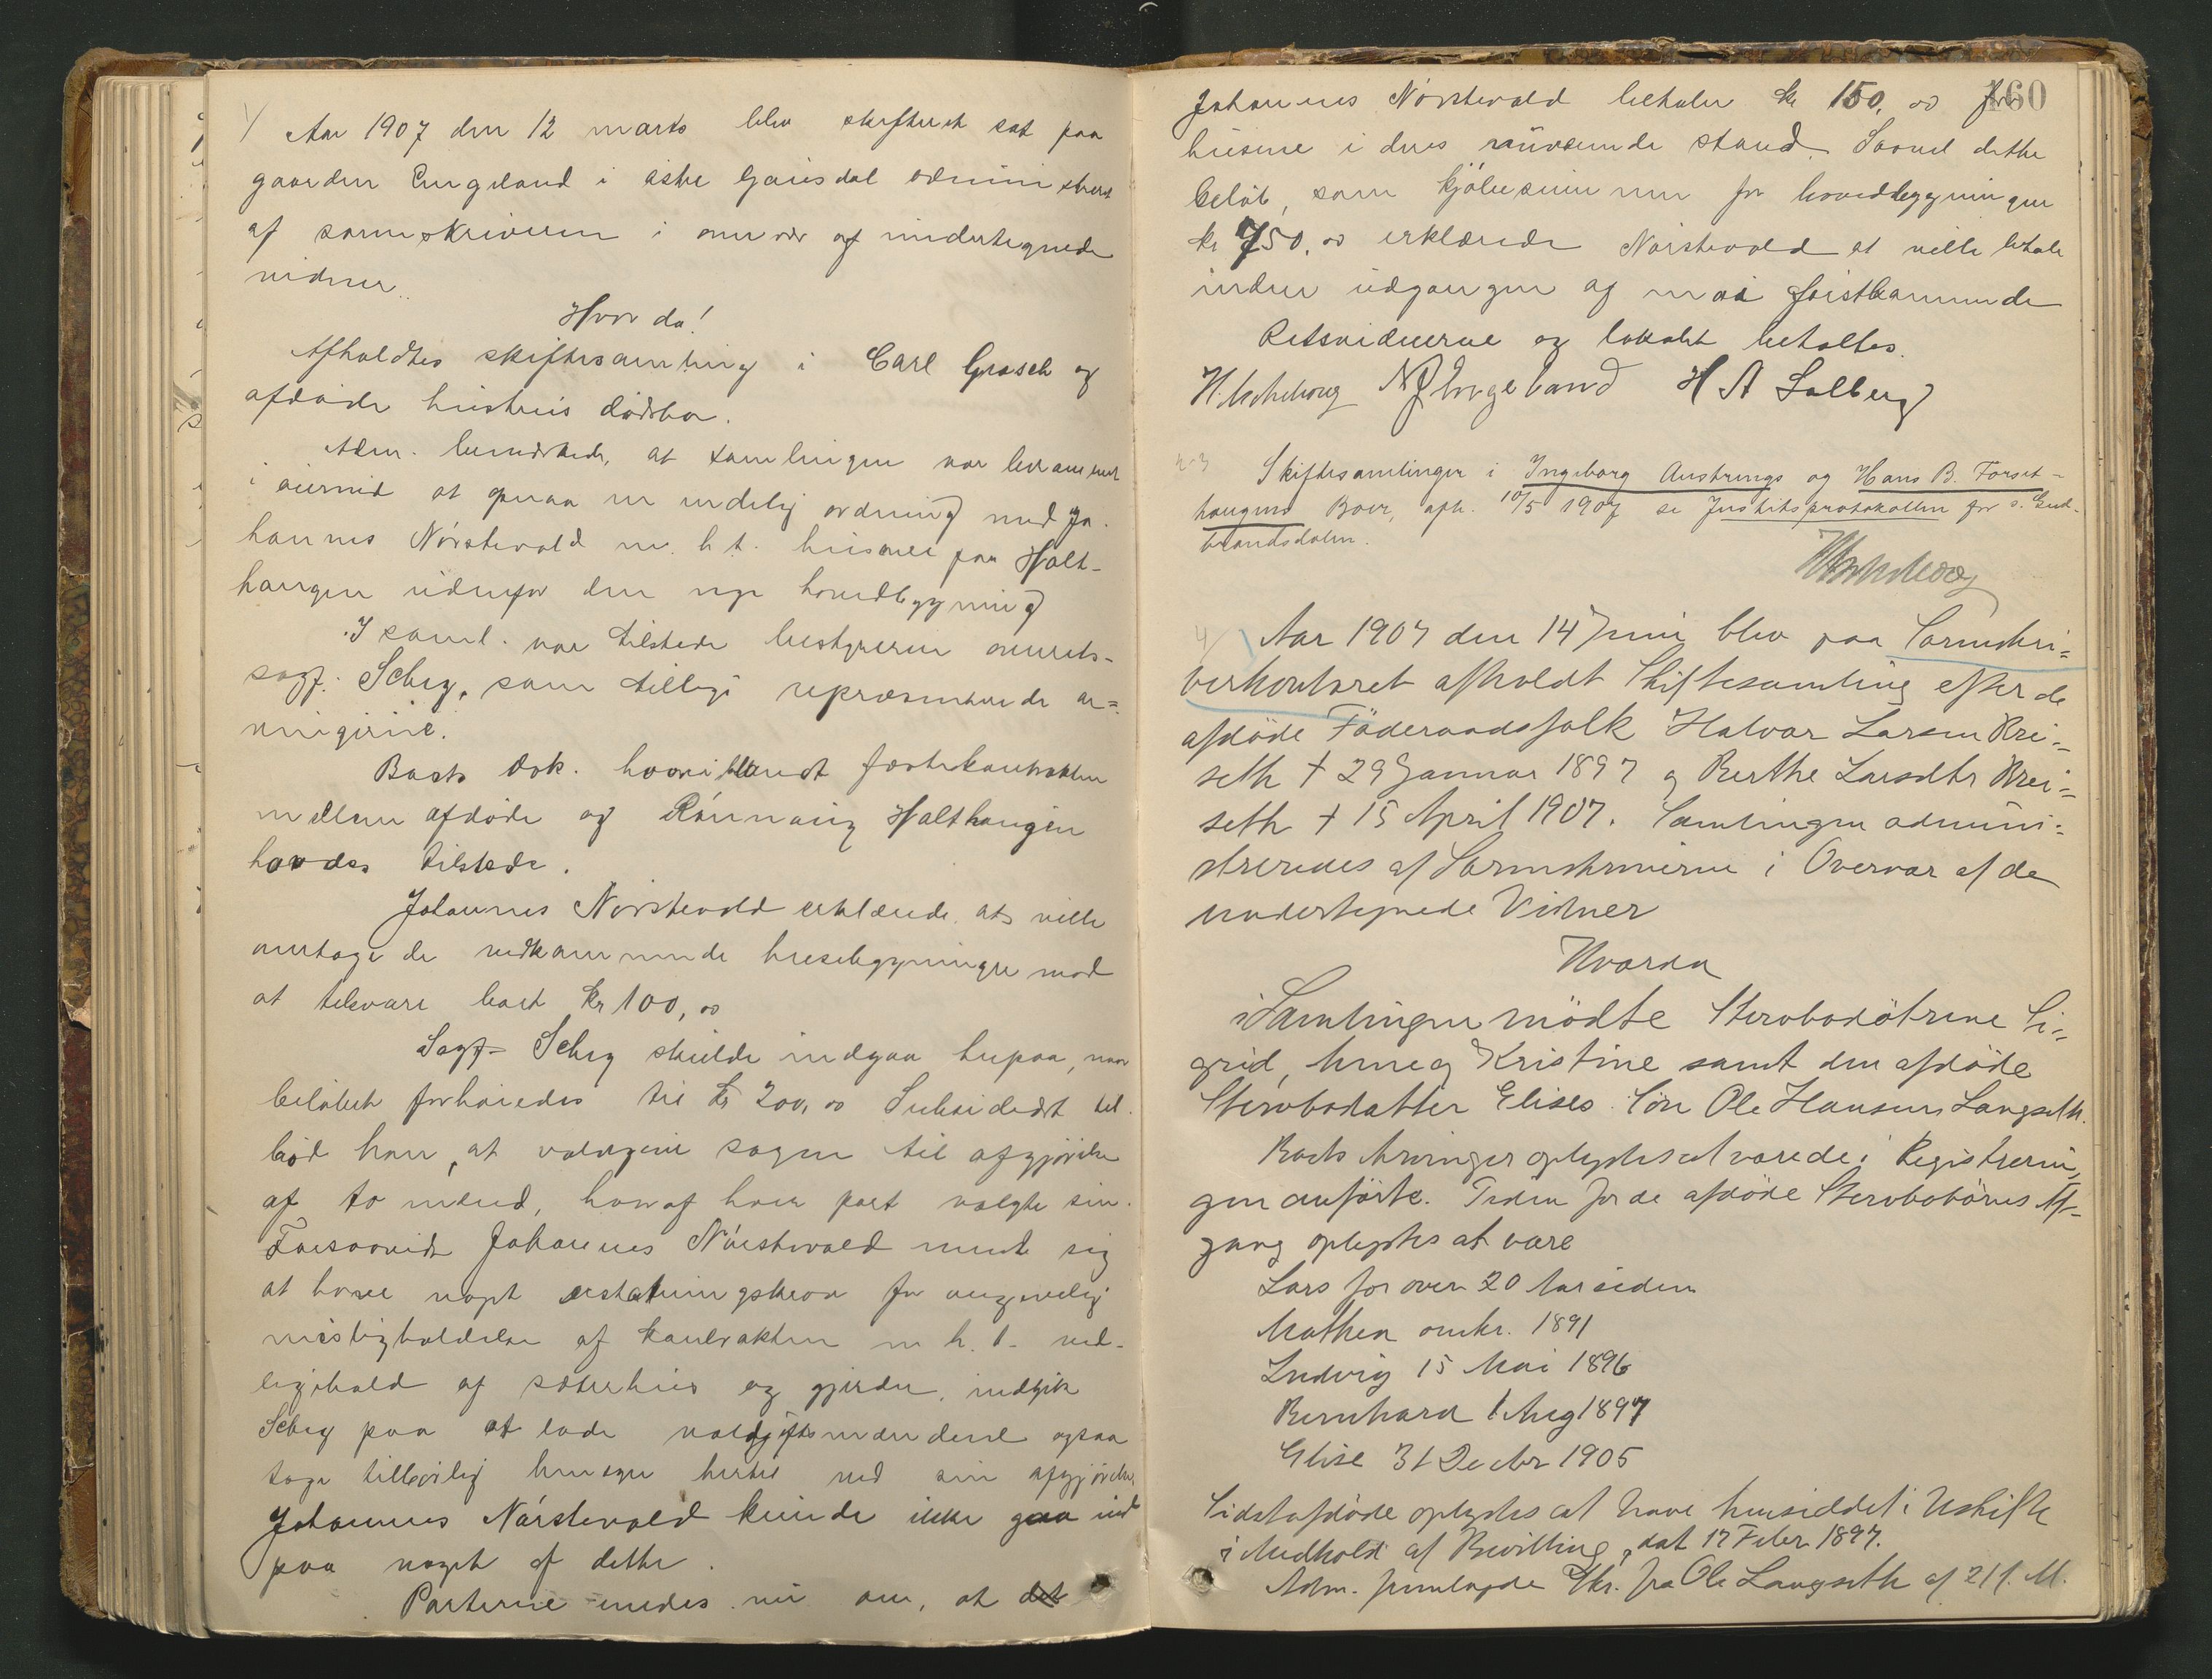 1/ Aar 1907 den 12 marts blev skifteret sat paa
gaarden Engeland i østre Gausdal administreret
af sorenskriveren i overvær af undertegnede
vidner.
Hvor da!
Afholdtes skiftesamling i Carl Grosch og
afdøde hustrus dødsbo.
Adm. bemærkede, at samlingen var berammet
i øiemed at opnaa en endelig ordning med Jo-
hannes Nørstevold m. h. t. husene paa Holt-
haugen udenfor den nye hovedbygning
I saml. var tilstede bestyreren overrets-
sagf. Scheg, som tillige repræsenterede ar-
vingerne.
Boets dok. hvoriblandt fæstekontrakten
mellem afdøde og Rønnaug Holthaugen
havdes tilstede.
Johannes Nørstevold erklærede at ville
overtage de vedkommende husebygninger mod
at tilsvare boet kr 100,00
Sagf. Scheg skulde indgaa herpaa, naar
beløbet forhøiedes til kr 200,00 Subsidiært til-
bød han, at voldgive sagen til afgjørelse
af to mænd, hvoraf hver part valgte sin.
Forsaavidt Johannes Nørstevold mente sig
at have noget erstatningskrav for angivelig
misligholdelse af kontrakten m. h. t. ved-
ligehold af sæterhus og gjerder, indgik
Scheg paa at lade voldgiftsmændene ogsaa
tage tilbørlig hensyn hertil ved sin afgjørelse.
Johannes Nørstevold kunde ikke gaa ind
paa noget af dette.
Parterne enedes nu om, at det
160
Johannes Nørstevold betaler kr 150,00 for
husene i deres nuværende stand. Saavel dette
beløb, som kjøbesummen for hovedbygningen
kr 750,00 erklærede Nørstevold at ville betale
inden udgangen af mai førstkommende
Retsvidnerne og lokalet betaltes.
N J Engeland H A Solberg
Skiftesamlinger i Ingeborg Austrengs og Hans B. Forset-
haugens Boer, afh. 10/5 1907 se Justitsprotokollen for s. Gud-
brandsdalen.
4/ Aar 1907 den 14 Juni blev paa Sorenskri-
verkontoret afholdt Skiftesamling efter de
afdøde Føderaadsfolk Halvor Larsen Brei-
seth † 29 Januar 1897 og Berthe Larsdtr Brei-
seth † 15 April 1907. Samlingen admini-
streredes af Sorenskriveren i Overvær af de
undertegnede Vidner
Hvorda
i Samlingen mødte Stervbodøtrene Si-
grid, og Kristine samt den afdøde
Stervbodatter Elises Søn Ole Hansen Langseth.
Boets Arvinger oplystes at være de i Registrerin-
gen anførte. Tiden for de afdøde Stervbobørns Af-
gang oplystes at være
Lars for over 20 Aar siden
Mathea omkr. 1891
Ludvig 15 Mai 1896
Bernhard 1 Aug 1897
Elise 31 Decbr 1905
Sidstafdøde oplystes at have hensiddet i Uskifte
i Medhold af Bevilling, dat 17 Febr 1897.
Adm. fremlagde Skr. fra Ole Langseth af 21 f. M.